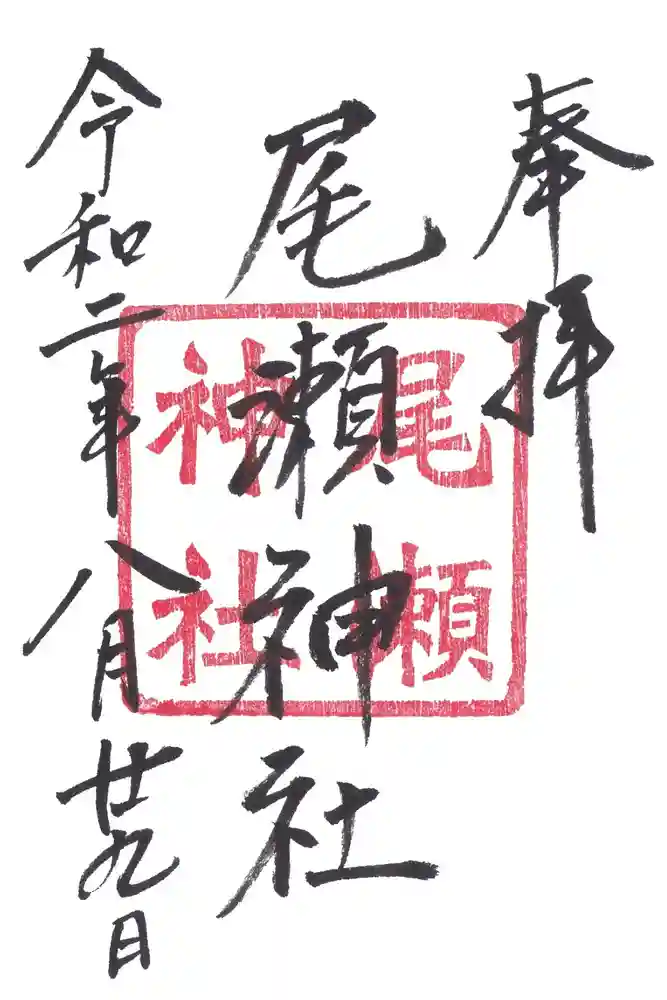 奉拝
尾瀬神社
尾瀬
神社
令和二年八月廿九日